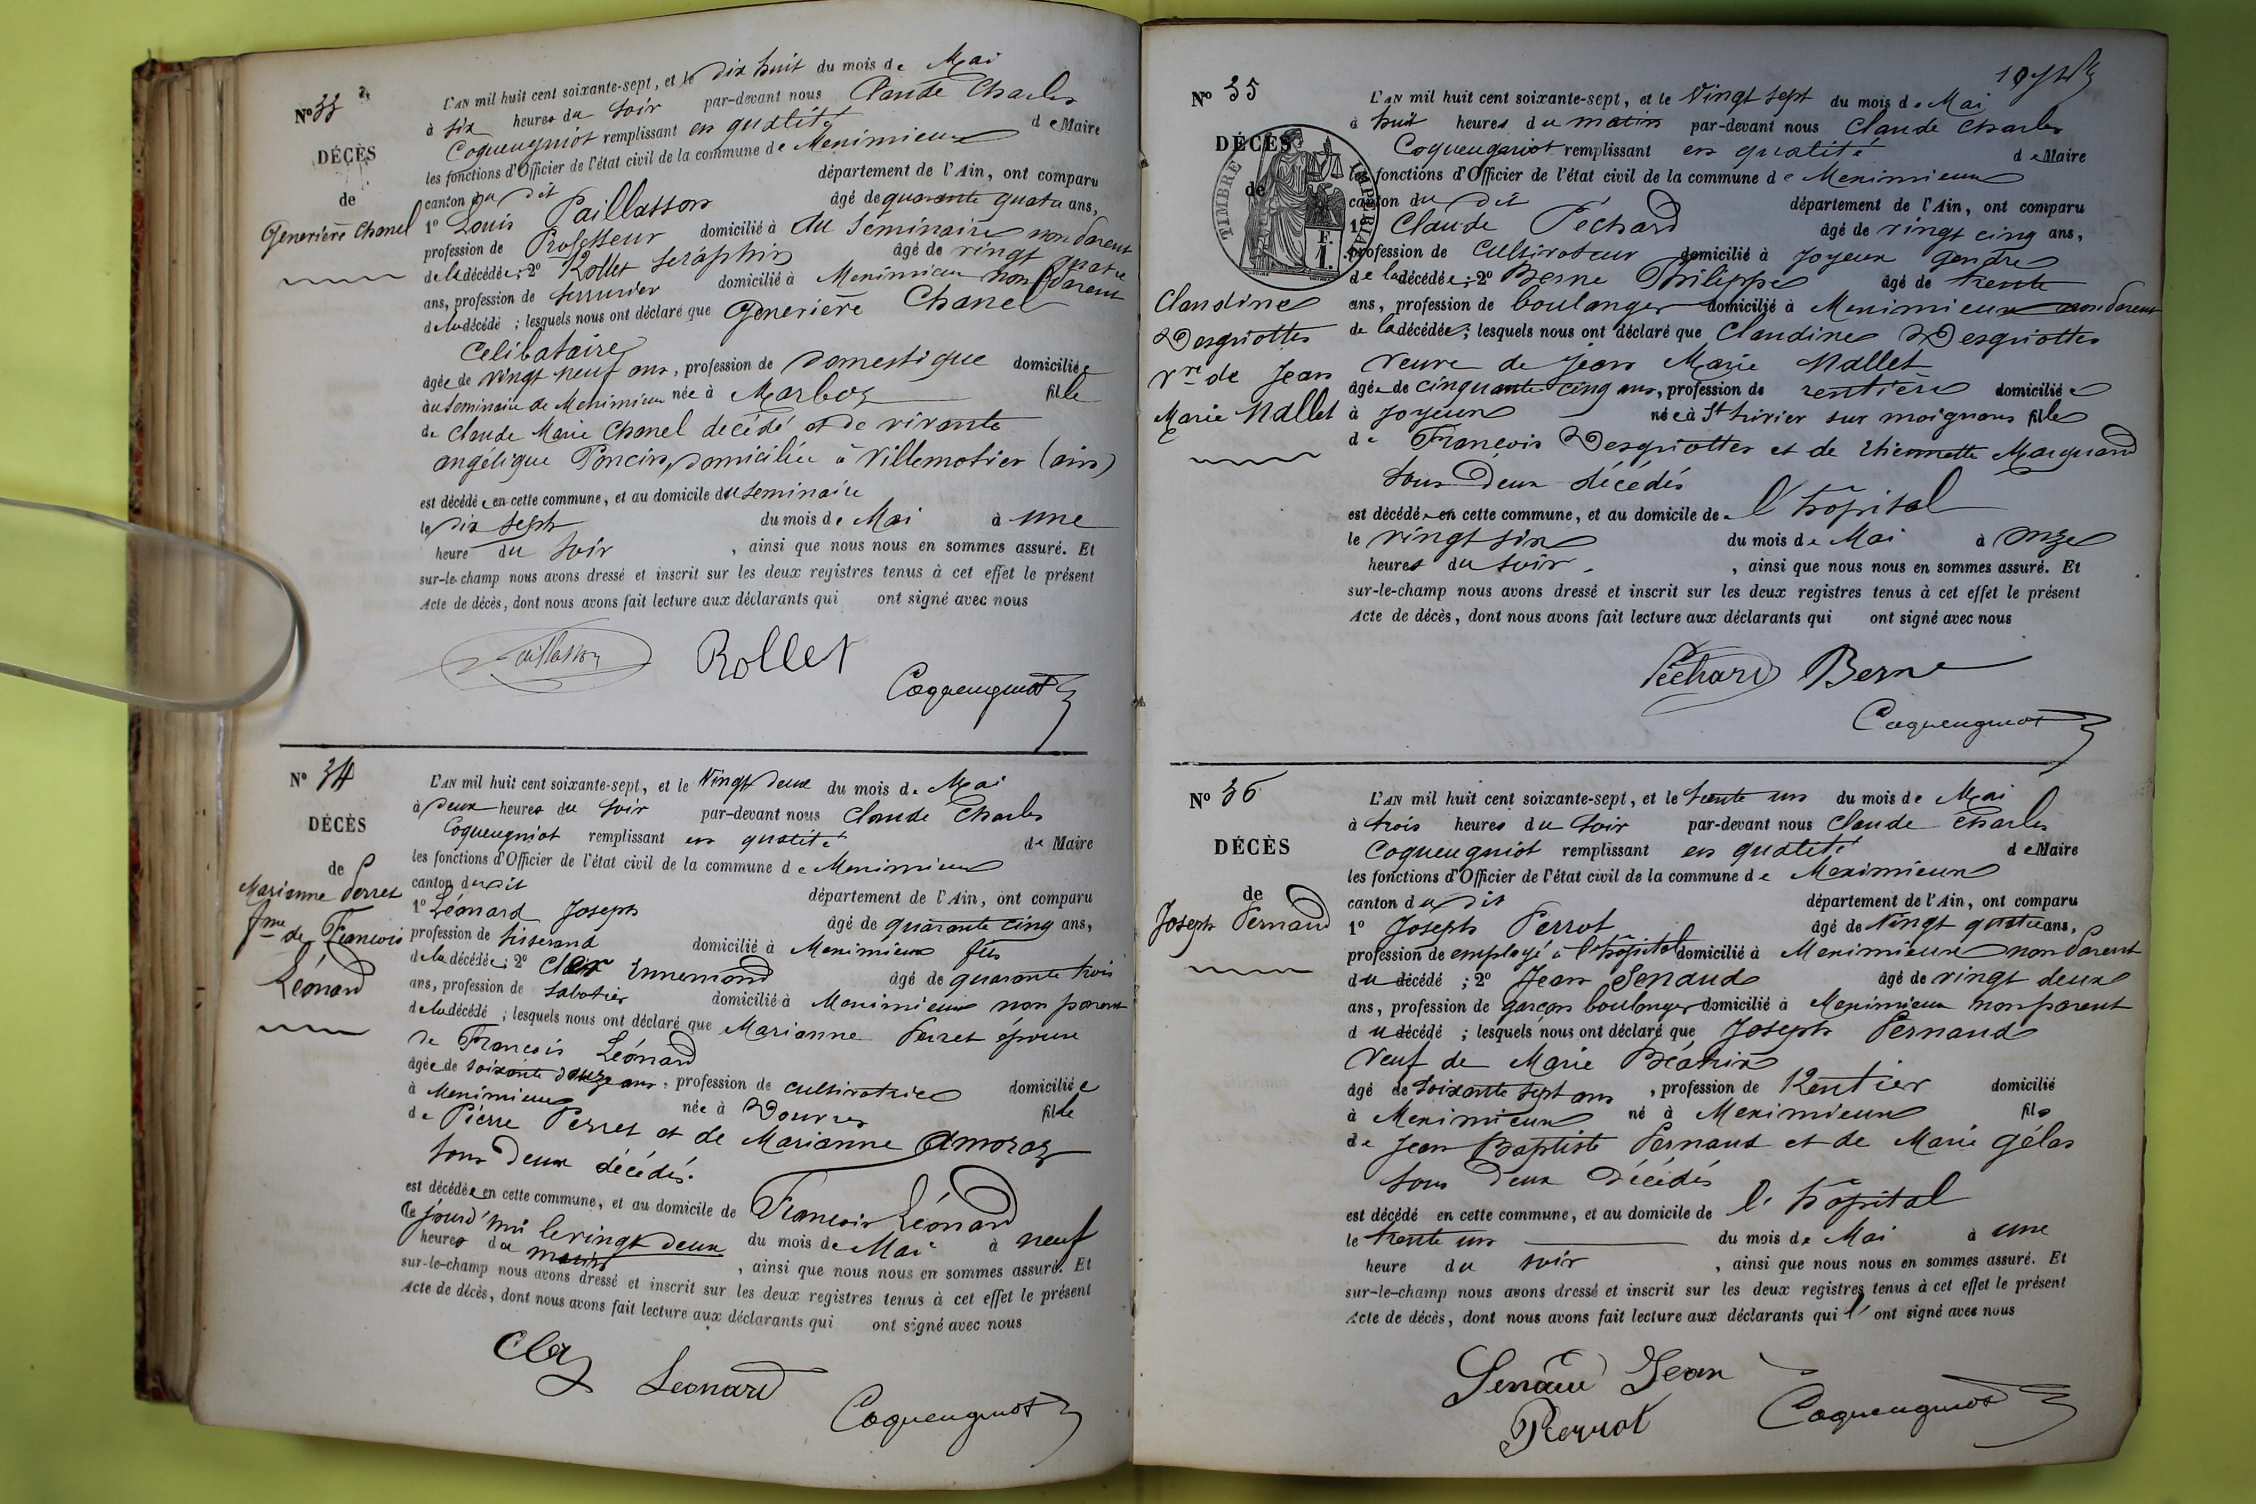 No 33
DÉCÈS
de
Generière Chanel
L'AN mil huit cent soixante-sept, et le dix huit du mois de Mai
à six heures du soir par-devant nous Claude Charles
Coqueugniot remplissant en qualité de Maire
les fonctions d'Officier de l'état civil de la commune de Meximieux
canton du dit département de l'Ain, ont comparu
1o Louis Paillasson âgé de quarante quatre ans,
profession de Professeur domicilié à du Seminaire non Parent
de la décédée; 2o Rollet Séraphin âgé de vingt quatre
ans, profession de serrurier domicilié à Meximieux non Parent
de la décédé ; lesquels nous ont déclaré que Generiere Chanel
Celibataire
âgée de vingt neuf ans, profession de domestique domiciliée
au Seminaire de Meximieux née à Marboz fille
de Claude Marie Chanel décédé et de vivante
angélique Poncin, domiciliée à Villemotier (ain)
est décédée en cette commune, et au domicile du Seminaire
le dix sept du mois de Mai à une
heure du soir , ainsi que nous nous en sommes assuré. Et
sur-le-champ nous avons dressé et inscrit sur les deux registres tenus à cet effet le présent
Acte de décès, dont nous avons fait lecture aux déclarants qui ont signé avec nous
Paillasson Rollet
Coqueugniot
No 34
DÉCÈS
de
Marianne Perret
fme de François
Léonard
L'AN mil huit cent soixante-sept, et le Vingt deux du mois de Mai
à deux heures du soir par-devant nous Claude Charles
Coqueugniot remplissant en qualité de Maire
les fonctions d'Officier de l'état civil de la commune de Meximieux
canton du dit département de l'Ain, ont comparu
1o Léonard Joseph âgé de quarante cinq ans,
profession de tisserand domicilié à Meximieux fils
de la décédée; 2o Claz Ennemond âgé de quarante trois
ans, profession de Sabotier domicilié à Meximieux non parent
de la décédé ; lesquels nous ont déclaré que Marianne Perret épouse
de François Léonard
âgée de soixante douze ans, profession de cultivatrice domiciliée
à Meximieux née à Douvres fille
de Pierre Perret et de Marianne Amoraz
tous deux décédés.
est décédée en cette commune, et au domicile de François Léonard
Ce jourd'hui le vingt deux du mois de Mai à neuf
heures du matin , ainsi que nous nous en sommes assuré. Et
sur-le-champ nous avons dressé et inscrit sur les deux registres tenus à cet effet le présent
Acte de décès, dont nous avons fait lecture aux déclarants qui ont signé avec nous
Claz Leonard
Coqueugniot
No 35
DÉCÈS
de
TIMBRE IMPÉRIAL
Claudine
Desgriottes
Vve de Jean
Marie Mallet
L'AN mil huit cent soixante-sept, et le Vingt sept du mois de Mai
à huit heures du matin par-devant nous Claude Charles
Coqueugniot remplissant en qualité de Maire
les fonctions d'Officier de l'état civil de la commune de Meximieux
canton du dit département de l'Ain, ont comparu
1o Claude Péchard âgé de vingt cinq ans,
profession de Cultivateur domicilié à Joyeux gendre
de la décédée; 2o Berne Philippe âgé de trente
ans, profession de boulanger domicilié à Meximieux non Parent
de la décédée; lesquels nous ont déclaré que Claudine Desgriottes
veuve de Jean Marie Mallet
âgée de cinquante cinq ans, profession de rentière domiciliée
à Joyeux née à St trivier sur moignans fille
de François Desgriottes et de Etiennette Marguand
tous deux décédés
est décédée en cette commune, et au domicile de l'hopital
le vingt six du mois de Mai à onze
heures du soir. , ainsi que nous nous en sommes assuré. Et
sur-le-champ nous avons dressé et inscrit sur les deux registres tenus à cet effet le présent
Acte de décès, dont nous avons fait lecture aux déclarants qui ont signé avec nous
Péchard Berne
Coqueugniot
No 36
DÉCÈS
de
Joseph Pernaud
L'AN mil huit cent soixante-sept, et le trente un du mois de Mai
à trois heures du soir par-devant nous Claude Charles
Coqueugniot remplissant en qualité de Maire
les fonctions d'Officier de l'état civil de la commune de Meximieux
canton du dit département de l'Ain, ont comparu
1o Joseph Perrot âgé de Vingt quatre ans,
profession de employé à l'hopital domicilié à Meximieux non Parent
du décédé ; 2o Jean Senaud âgé de vingt deux
ans, profession de garçon boulanger domicilié à Meximieux non parent
du décédé ; lesquels nous ont déclaré que Joseph Pernaud
Veuf de Marie Béatrix
âgé de soixante sept ans , profession de Rentier domicilié
à Meximieux né à Meximieux fils
de Jean Baptiste Pernaud et de Marie gélas
tous deux décédés
est décédé en cette commune, et au domicile de l'hopital
le trente un du mois de Mai à une
heure du soir , ainsi que nous nous en sommes assuré. Et
sur-le-champ nous avons dressé et inscrit sur les deux registres tenus à cet effet le présent
Acte de décès, dont nous avons fait lecture aux déclarants qui l' ont signé avec nous
Senaud Jean
Coqueugniot
Perrot